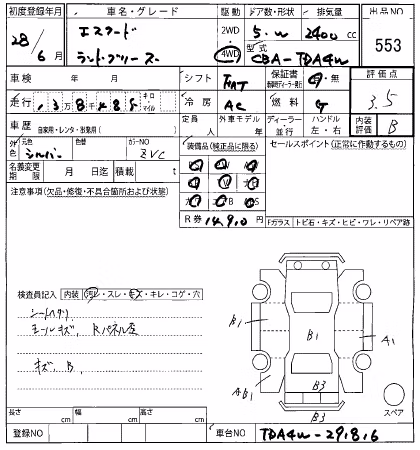 初度登録年月 車名・グレード 駆動 ドア数・形状 排気量 出品NO
28/6月 エスクード ランドブリーズ 2WD 4WD 5・W 2400cc 553
型式 CBA-TDA4W
車検 年 月 シフト FAT 保証書 有・無 評価点
走行 キロ マイル 冷房 AC 燃料 G 3.5
車歴 自家用・レンタ・ 定員 人 外車モデル 年 ディーラー 並行 ハンドル 左・右 内装評価 B
外色 元色 シルバー 色替 カラーNO ZVC 装備品(純正品に限る) セールスポイント(正常に作動するもの)
名義変更期限 月 日迄 積載 t
注意事項(欠品・修復・不具合箇所および状態)
R券 円 Fガラス トビ石・キズ・ヒビ・ワレ・リペア跡
検査員記入 内装 汚レ・スレ・キズ・キレ・コゲ・穴
モールキズ、Rパネル歪
キズ、B
B1
B1
A1
AB1
B3
B3
スペア
長さ cm 幅 cm 高さ cm
登録NO 車台NO